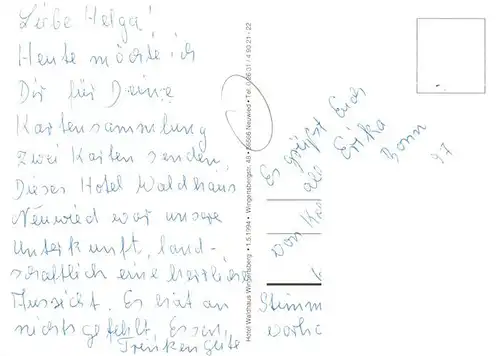 Liebe Helga!
Heute möchte ich
Dir für Deine
Kartensammlung
zwei Karten senden.
Dieses Hotel Waldhaus
Neuwied war unsere
Unterkunft, land-
schaftlich eine herrliche
Aussicht. Es hat an
nichts gefehlt. Essen,
Trinken gute
Stimm
vorha
Es grüßt Euch
alle
Erika
von Ka
Bonn
97
Hotel Waldhaus Wingertsberg • 1.5.1994 • Wingertsbergstr. 48 • 56566 Neuwied • Tel. 02631 / 4 90 21 - 22